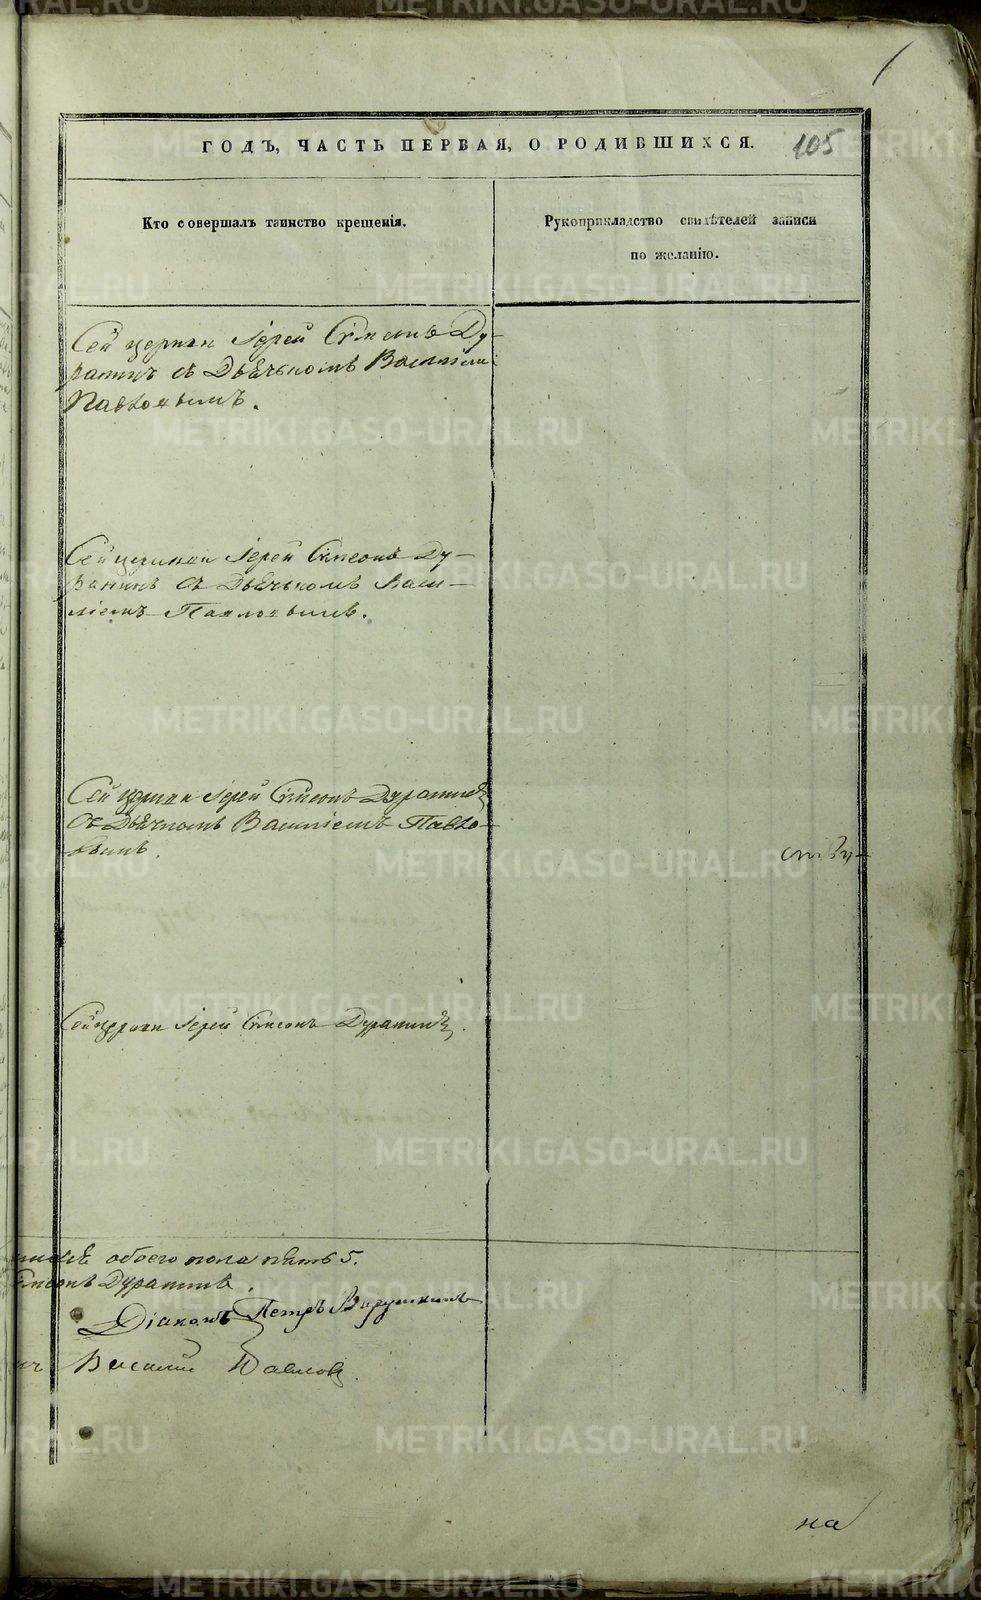 ГОДЪ, ЧАСТЬ ПЕРВАЯ, О РОДИВШИХСЯ. 105
Кто совершалъ таинство крещенія.
Рукоприкладство свидѣтелей записи
по желанію.
Сей церкви Іерей Симеонъ Ду-
ранинъ съ Дьячкомъ Василіем
Павловымъ.
Сей церкви Іерей Симеонъ Ду-
ранинъ съ Дьячькомъ Васи-
ліемъ Павловымъ.
Сей церкви Іерей Симеонъ Дуранинъ
съ Дьячкомъ Василіемъ Павло-
вымъ.
Сей церкви Іерей Симеонъ Дуранинъ.
обоего пола пять 5.
Дуранинъ.
Діаконъ Петръ
Василий Павловъ.
на
METRIKI.GASO-URAL.RU